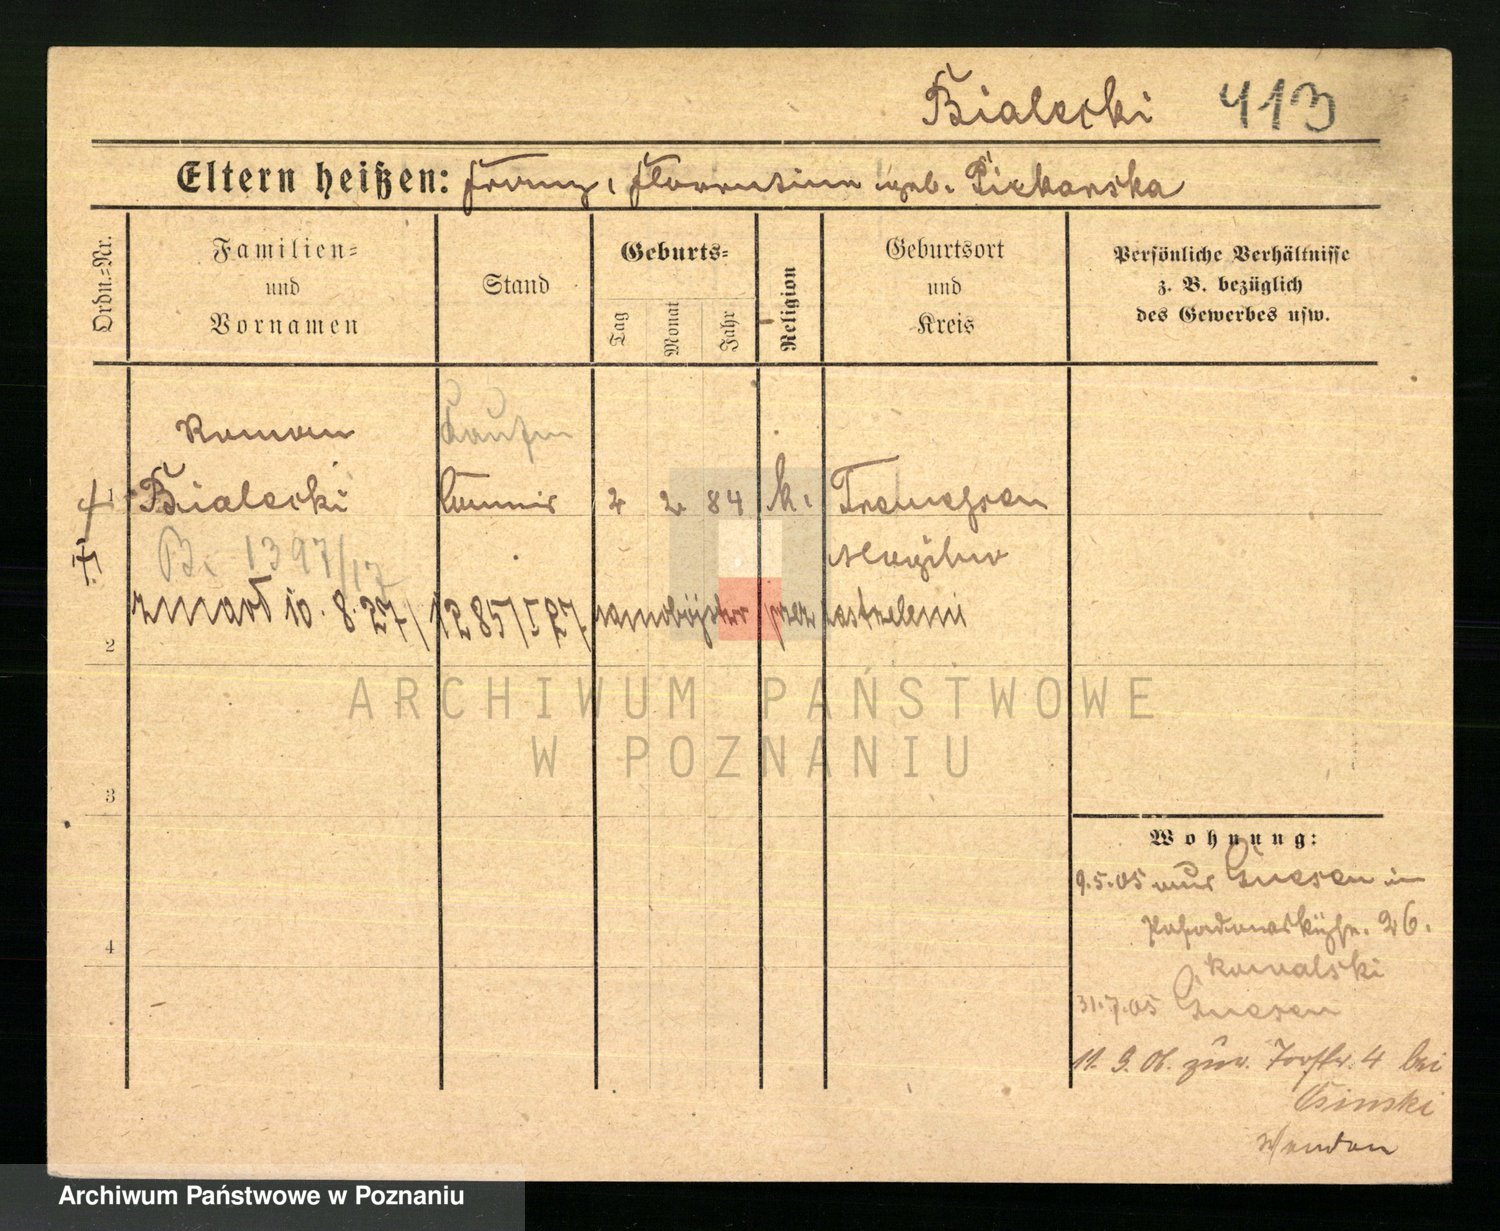 Bialecki 413
Eltern heißen: Franz, Florentine geb. Piekarska
Ordn.-Nr.
Familien-
und
Vornamen
Stand
Geburts-
Tag
Monat
Jahr
Religion
Geburtsort
und
Kreis
Persönliche Verhältnisse
z. B. bezüglich
des Gewerbes usw.
Roman
Kaufm
1 Bialecki Commis 2 2 84 k. Tremessen
Mogilno
B. 1397/17
zmarł 10.8.27/ samobójstwo przez
2
ARCHIWUM PAŃSTWOWE
W POZNANIU
3
Wohnung:
9.5.05 aus Gnesen in
26.
4
Kowalski
31.7.05 Gnesen
11.9.06. zur. 4 bei
Osinski
Wenden
Archiwum Państwowe w Poznaniu